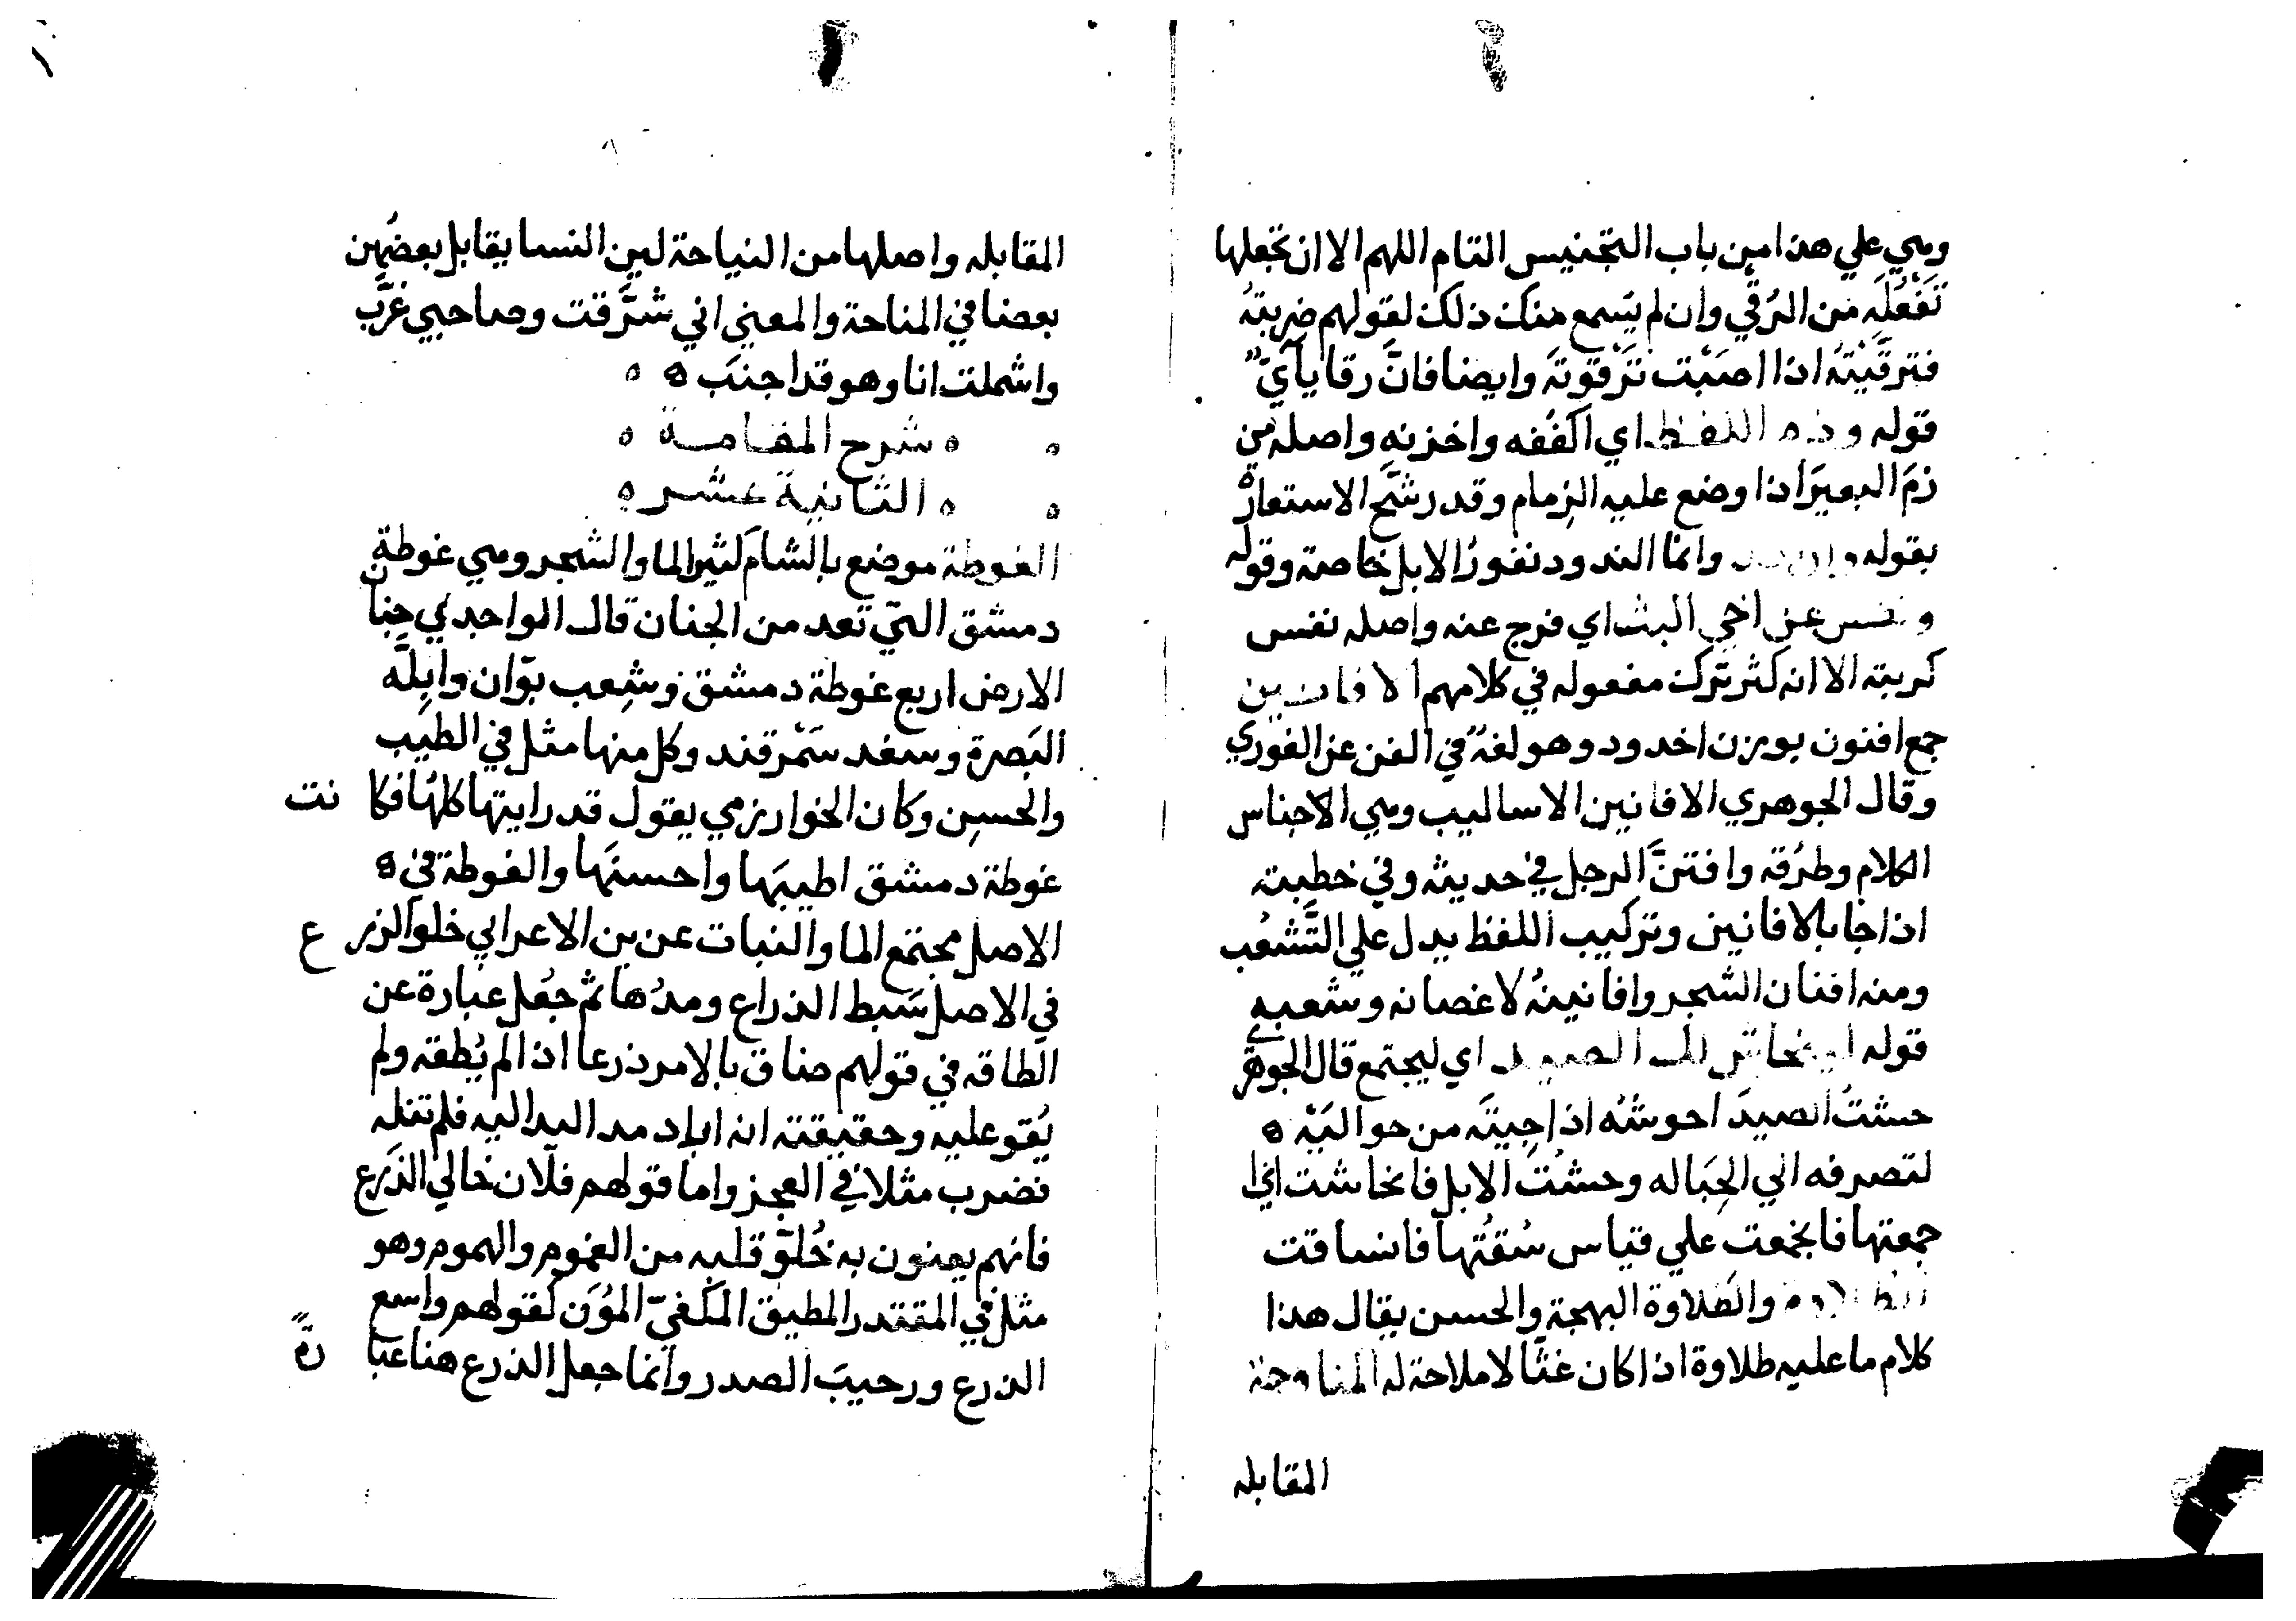 وهي علي هذا من باب التجنيس التام اللهم الا ان تجعلها
تَفْعُلَه من الرُقي وان لم يَسمع منك ذلك لقولهم ضربتهُ
فترقَّيْتهُ اذا اصَبْت تَرْقُوتَه وايضا فانَّ رقا يأىّ
قوله اللفظ اي اكففه واخزنه واصله من
زمَ البعيرَ اذا وضع عليه الزمام وقد رشَّح الاستعارة
بقوله وانما الندود نفورُ الابل خاصة وقوله
ونفس عن اخي البث اي فرج عنه واصله نفس
كربته الا انه كثر ترك مفعوله في كلامهم الافانين
جمع افنون بوزن اخدود وهو لغةٌ في الفن عن الغوري
وقال الجوهري الافانين الاساليب وهي الاجناس
الكلام وطرُقه وافتنَّ الرجل في حديثه وفي خطبته
اذا جا بالافانين وتركيب اللفظ يدل علي التَّشعُب
ومنه افنان الشجر وافانينهُ لاغصانه وشعبه
قوله الصيد اي ليجتمع قال الجوهري
حشتُ الصيدَ احوشُه اذا جيتَه من حواليَْه ه
لتصرفه الي الحِبَاله وحشْتُ الابل فانحاشت اي
جمعتها فانجمعت علي قياس سُقتُها فانساقت
والطلاوة البهجة والحسن يقال هذا
كلام ما عليه طلاوة اذا كان غثًّا لا ملاحة له المناوحة
المقابله
المقابله واصلها من النياحة لين النسا يقابل بعضُهن
بعضا في المناحة والمعني اني شرَّقت وصاحبي غرَّب
واشملت انا وهو قد اجنَب ه ه
ه شرح المقامة ه
ه الثانية عشر ه
الغوطة موضع بالشام كثير الما والشجر وهي غوطة
دمشق التي تعد من الجنان قال الواحدي جنان
الارض اربع غوطة دمشق وشِعب بوّان وابِلَّه
البَصرة وسغد سَمْرقند وكل منها مثل في الطيب
والحسن وكان الخوارزمي يقول قد رايتها كلهَّا فكانت
غوطة دمشق اطيبَها واحسنَها والغوطة في ه
الاصل مجتمع الما والنبات عن بن الاعرابي خلو الذرع
في الاصل سَبط الذراع ومدُها ثم جعُل عبارة عن
الطاقه في قولهم ضاق بالامر ذرعا اذا لم يُطقه ولم
يُقو عليه وحقيقته انه اراد مد اليد اليه فلم تنله
تضرب مثلا في العجز واما قولهم فلان خالي الذَرع
فانهم يعنون به خُلوّ قلبه من الغموم والهموم وهو
مثل في المقتدر المطيق المكفيّ المؤَن كقولهم واسع
الذرع ورحيبَ الصدر وانما جعل الذرع هنا عبارةً